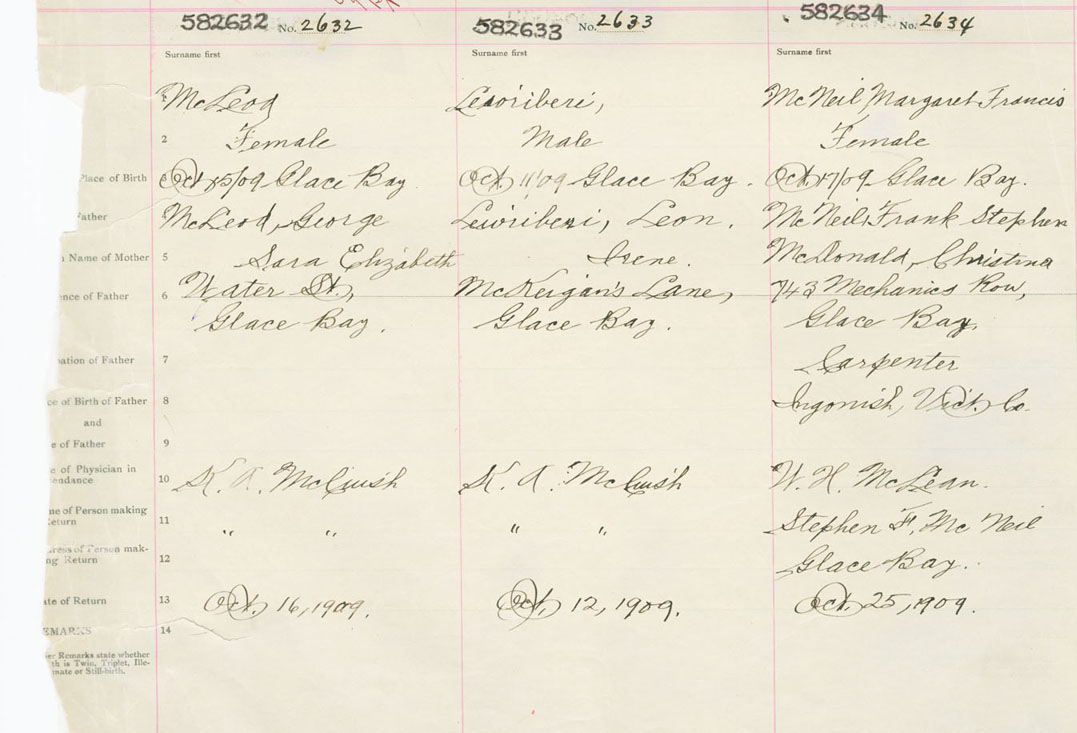 582632 No. 2632 582633 No. 2633 582634 No. 2634
Surname first Surname first Surname first
1 McLeod Lewiriberi, McNeil, Margaret Francis
2 Female Male Female
Place of Birth 3 Oct 15/09 Glace Bay Oct. 11'09 Glace Bay. Oct. 17/09 Glace Bay.
Father 4 McLeod, George Lewiriberi, Leon. McNeil, Frank Stephen
Name of Mother 5 Sara Elizabeth Irene. McDonald, Christina
ence of Father 6 Water St., McKeigan's Lane, 743 Mechanics Row,
Glace Bay. Glace Bay. Glace Bay.
pation of Father 7 Carpenter
ce of Birth of Father 8 Ingonish, Vict. Co.
and
e of Father 9
e of Physician in
endance 10 K. A. McCuish K. A. McCuish W. H. McLean.
me of Person making
Return 11 " " " " Stephen F. McNeil
dress of Person mak-
ng Return 12 Glace Bay.
ate of Return 13 Oct. 16, 1909. Oct. 12, 1909. Oct. 25, 1909.
EMARKS 14
er Remarks state whether
th is Twin, Triplet, Ille-
mate or Still-birth.